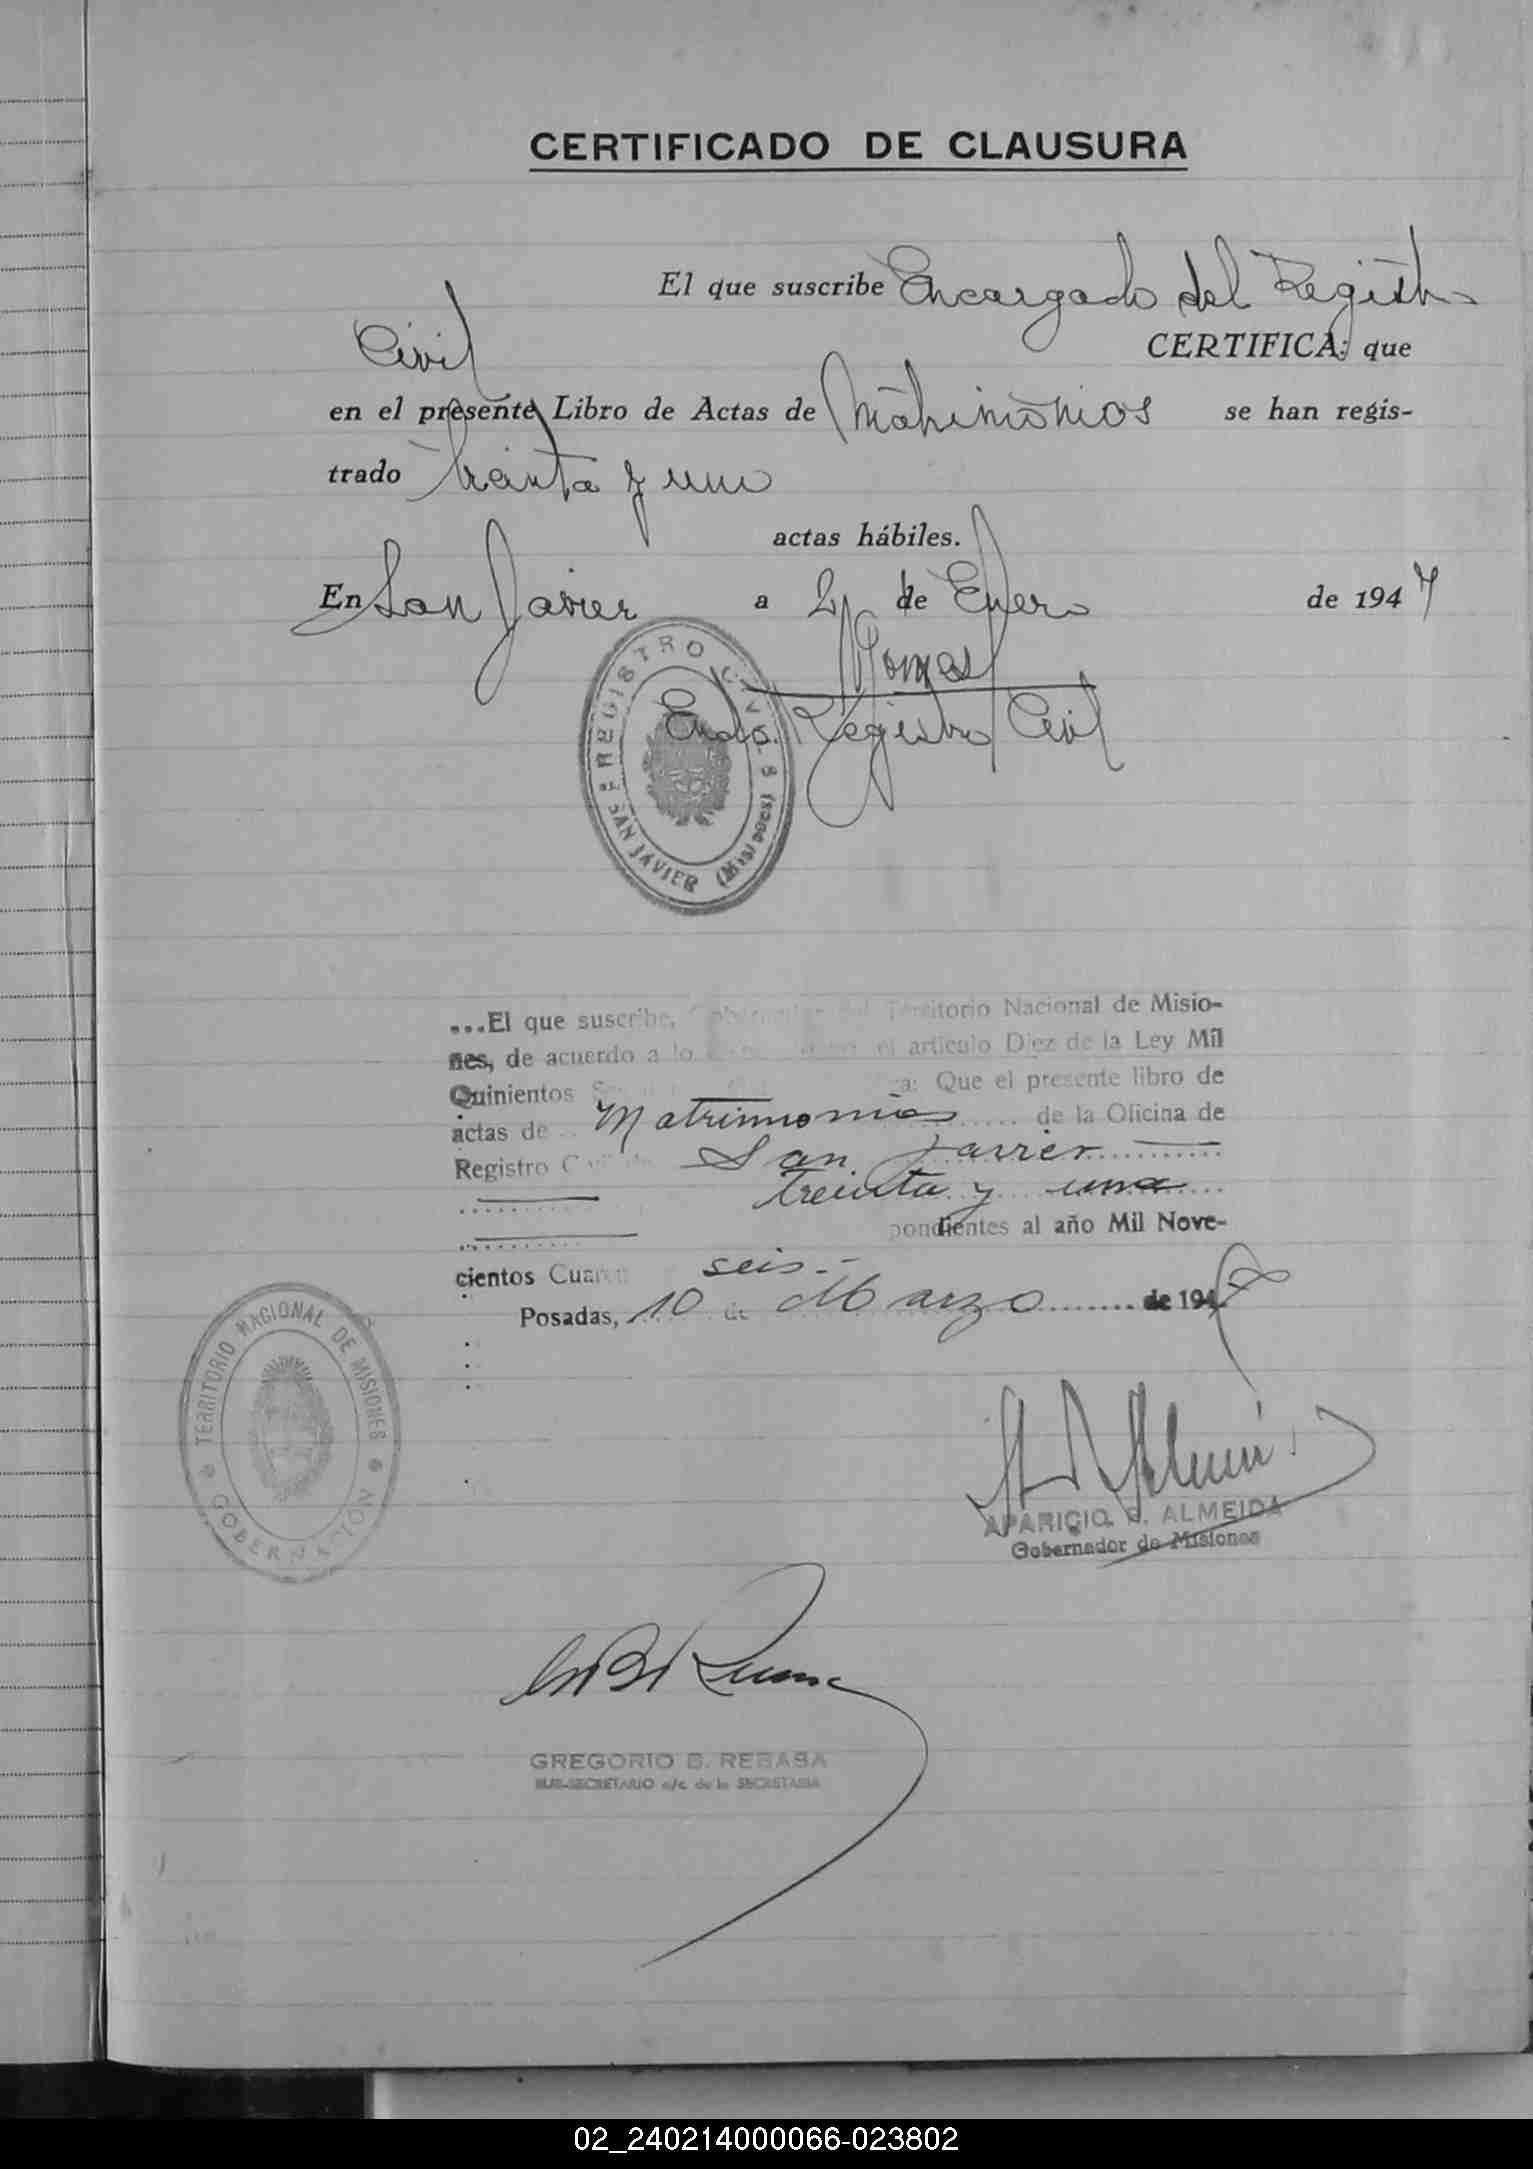 CERTIFICADO DE CLAUSURA
El que suscribe Encargado del Registro
Civil
CERTIFICA: que
en el presente Libro de Actas de Matrimonios se han regis-
trado treinta y uno
actas hábiles.
En San Javier a 2 de Enero de 1947
Encdo. Registro Civil
REGISTRO CIVIL
SAN JAVIER (Misiones)
...El que suscribe, Gobernador del Territorio Nacional de Misio-
nes, de acuerdo a lo el artículo Diez de la Ley Mil
Quinientos Que el presente libro de
actas de Matrimonios de la Oficina de
Registro Civil de San Javier
treinta y una
pondientes al año Mil Nove-
cientos Cuaren seis.-
Posadas, 10 de Marzo de 1947
TERRITORIO NACIONAL DE MISIONES
GOBERNACION
APARICIO ALMEIDA
Gobernador de Misiones
GREGORIO B. REBASA
SUB-SECRETARIO a/c. de la SECRETARIA
02_240214000066-023802